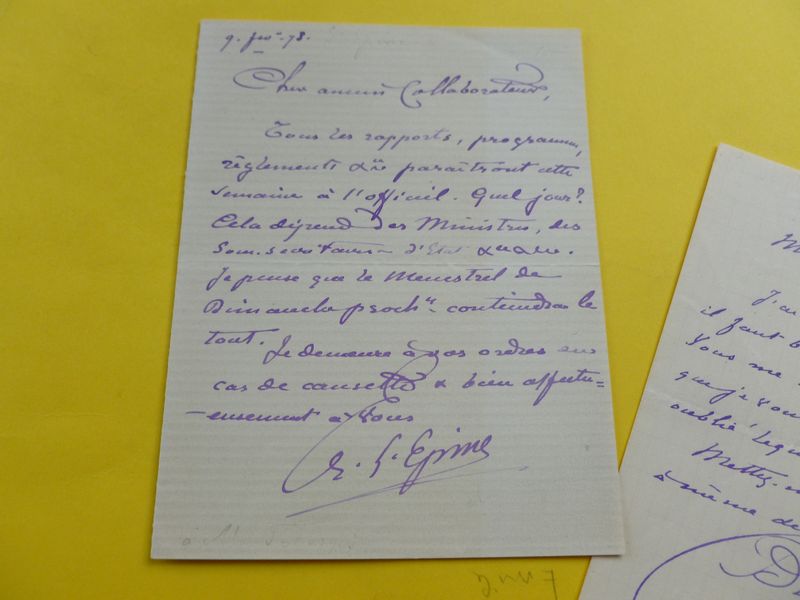 9. 78.
Cher ancien Collaborateur,
Tous les rapports, programmes,
règlements &a paraîtront cette
semaine à l'officiel. Quel jour?
Cela dépend des Ministres, des
Sous. secrétaires d'Etat
Je pense que le Menestrel de
Dimanche proch. contiendra le
tout.
Je demeure à vos ordres en
cas de causette & bien affectu=
-eusement à vous
E. L'Epine
J'ai
il faut
Vous me
que je vous
oublié
Mettez
à même de